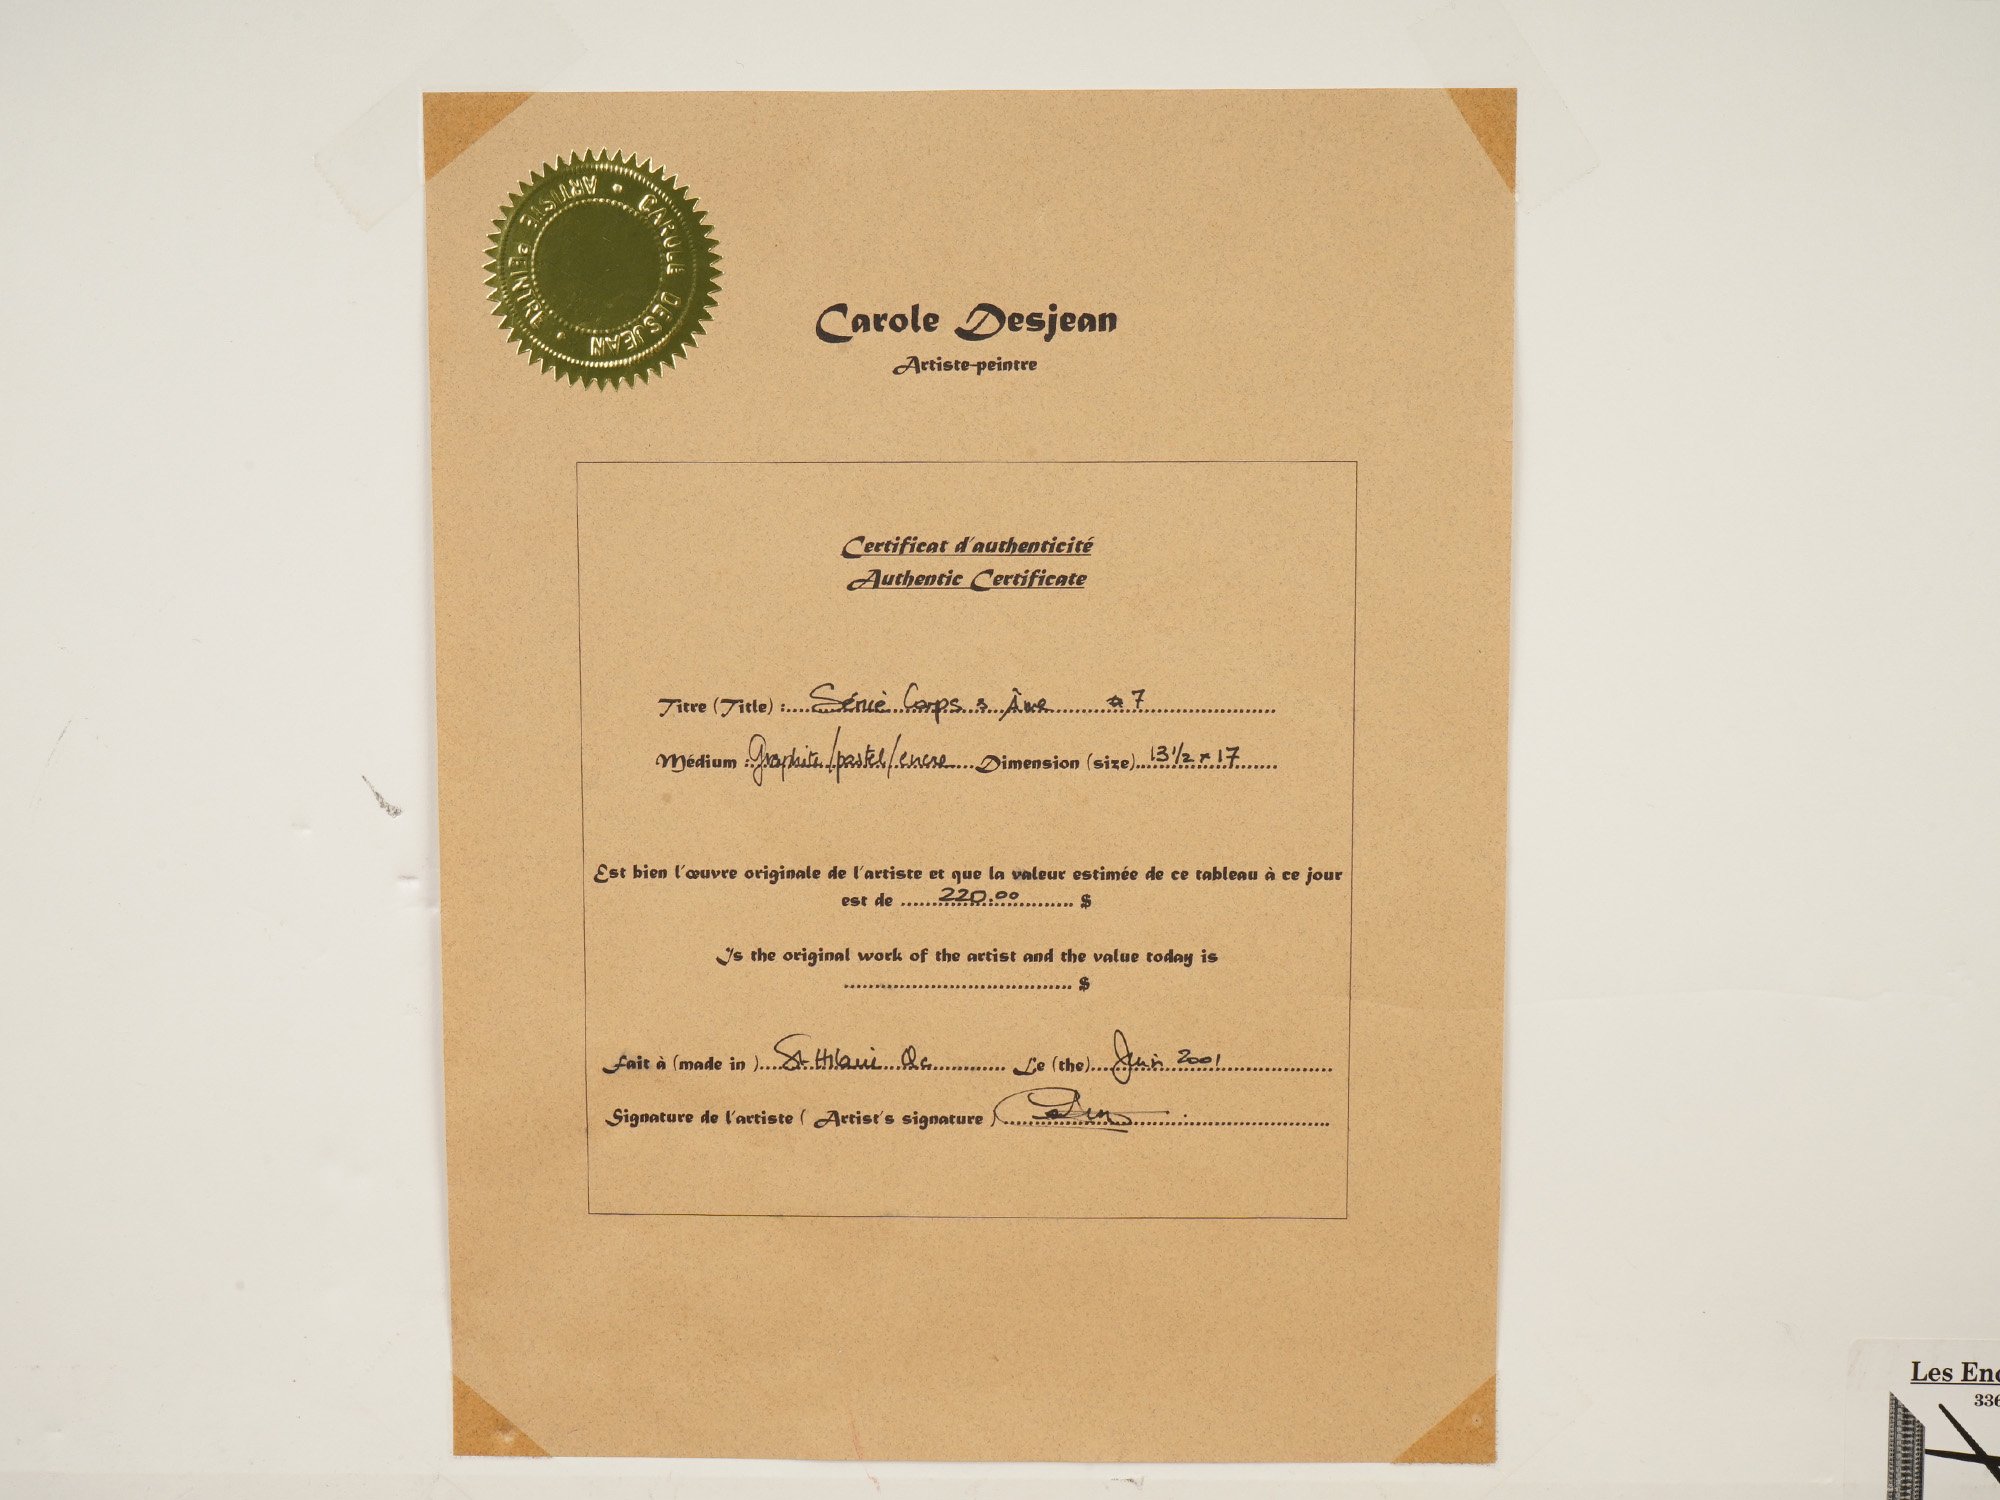 CAROLE DESJEAN • ARTISTE PEINTRE •
Carole Desjean
Artiste-peintre
Certificat d'authenticité
Authentic Certificate
Titre (Title) : Série Corps & Âme #7
Médium : Graphite/pastel/encre Dimension (size) 13 1/2 x 17
Est bien l'œuvre originale de l'artiste et que la valeur estimée de ce tableau à ce jour
est de 220.00 $
Is the original work of the artist and the value today is
$
Fait à (made in ) St-Hilaire Qc Le (the) Juin 2001
Signature de l'artiste ( Artist's signature )
Les Enc
336